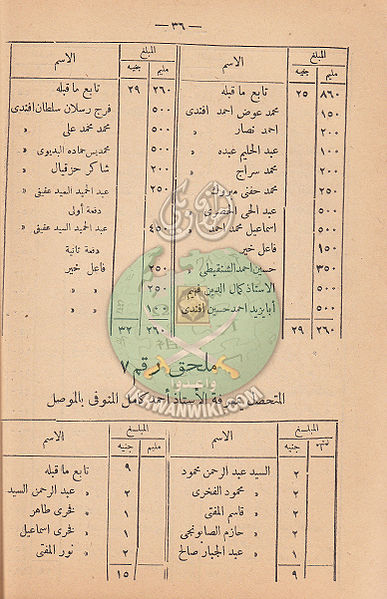 — ٣٦ —
المبلغ الاسم المبلغ الاسم
مليم جنيه مليم جنيه
٨٦٠ ٢٥ تابع ما قبله
١٥٠ محمد عوض احمد افندى
٢٠٠ احمد نصار »
١٠٠ عبد الحليم عبده »
٢٠٠ محمد سراج »
٢٥٠ محمد حفنى مبروك »
٥٠٠ عبد الحى الحضرى »
٥٠٠ اسماعيل محمد احمد »
١٥٠ فاعل خير
٣٥٠ حسين احمد الشنقيطى »
٥٠٠ الاستاذ كمال الدين فهيم
٥٠٠ أبا يزيد احمد حسين افندى
٢٦٠ ٢٩
٢٦٠ ٢٩ تابع ما قبله
٥٠٠ فرج رسلان سلطان افندى
٥٠٠ محمد محمد على »
٥٠٠ محمد يس حماده البديوى »
٢٠٠ شاكر حزقيال »
٢٥٠ عبد الحميد السيد عفيفى »
دفعة أولى
٤٥٠ عبد الحميد السيد عفيفى »
دفعة ثانية
٢٥٠ فاعل خير
٢٥٠ » »
١٠٠ » »
٢٦٠ ٣٢
ملحق رقم ٧
المتحصل بمعرفة الأستاذ أحمد كامل المنوفى بالموصل
المبلغ الاسم المبلغ الاسم
مليم جنيه مليم جنيه
٢ السيد عبد الرحمن محمود
٢ » محمود الفخرى
٢ » قاسم المفتى
٢ » حازم الصابونجى
١ » عبد الجبار صالح
٩
٩ تابع ما قبله
٢ » عبد الرحمن السيد
١ » فخرى طاهر
١ » فخرى اسماعيل
٢ » نور المفتى
١٥
وأعدوا
IKHWANWIKI.COM